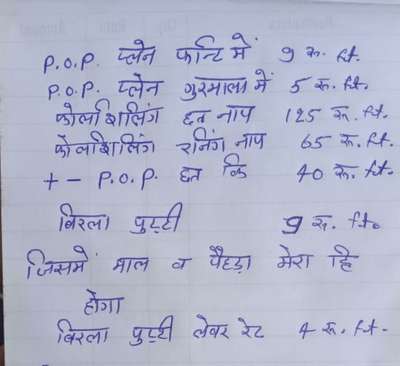 P.O.P. प्लेन फान्टि में 9 रू. ft.
P.O.P. प्लेन गुरमाला में 5 रू. ft.
फोलशिलिंग छत नाप 125 रू. ft.
फोलशिलिंग रनिंग नाप 65 रू. ft.
+ - P.O.P. छत कि 40 रू. ft.
बिरला पुट्टी 9 रू. ft.
जिसमें माल व पैहड़ा मेरा हि
होगा
बिरला पुट्टी लेबर रेट 4 रू. ft.